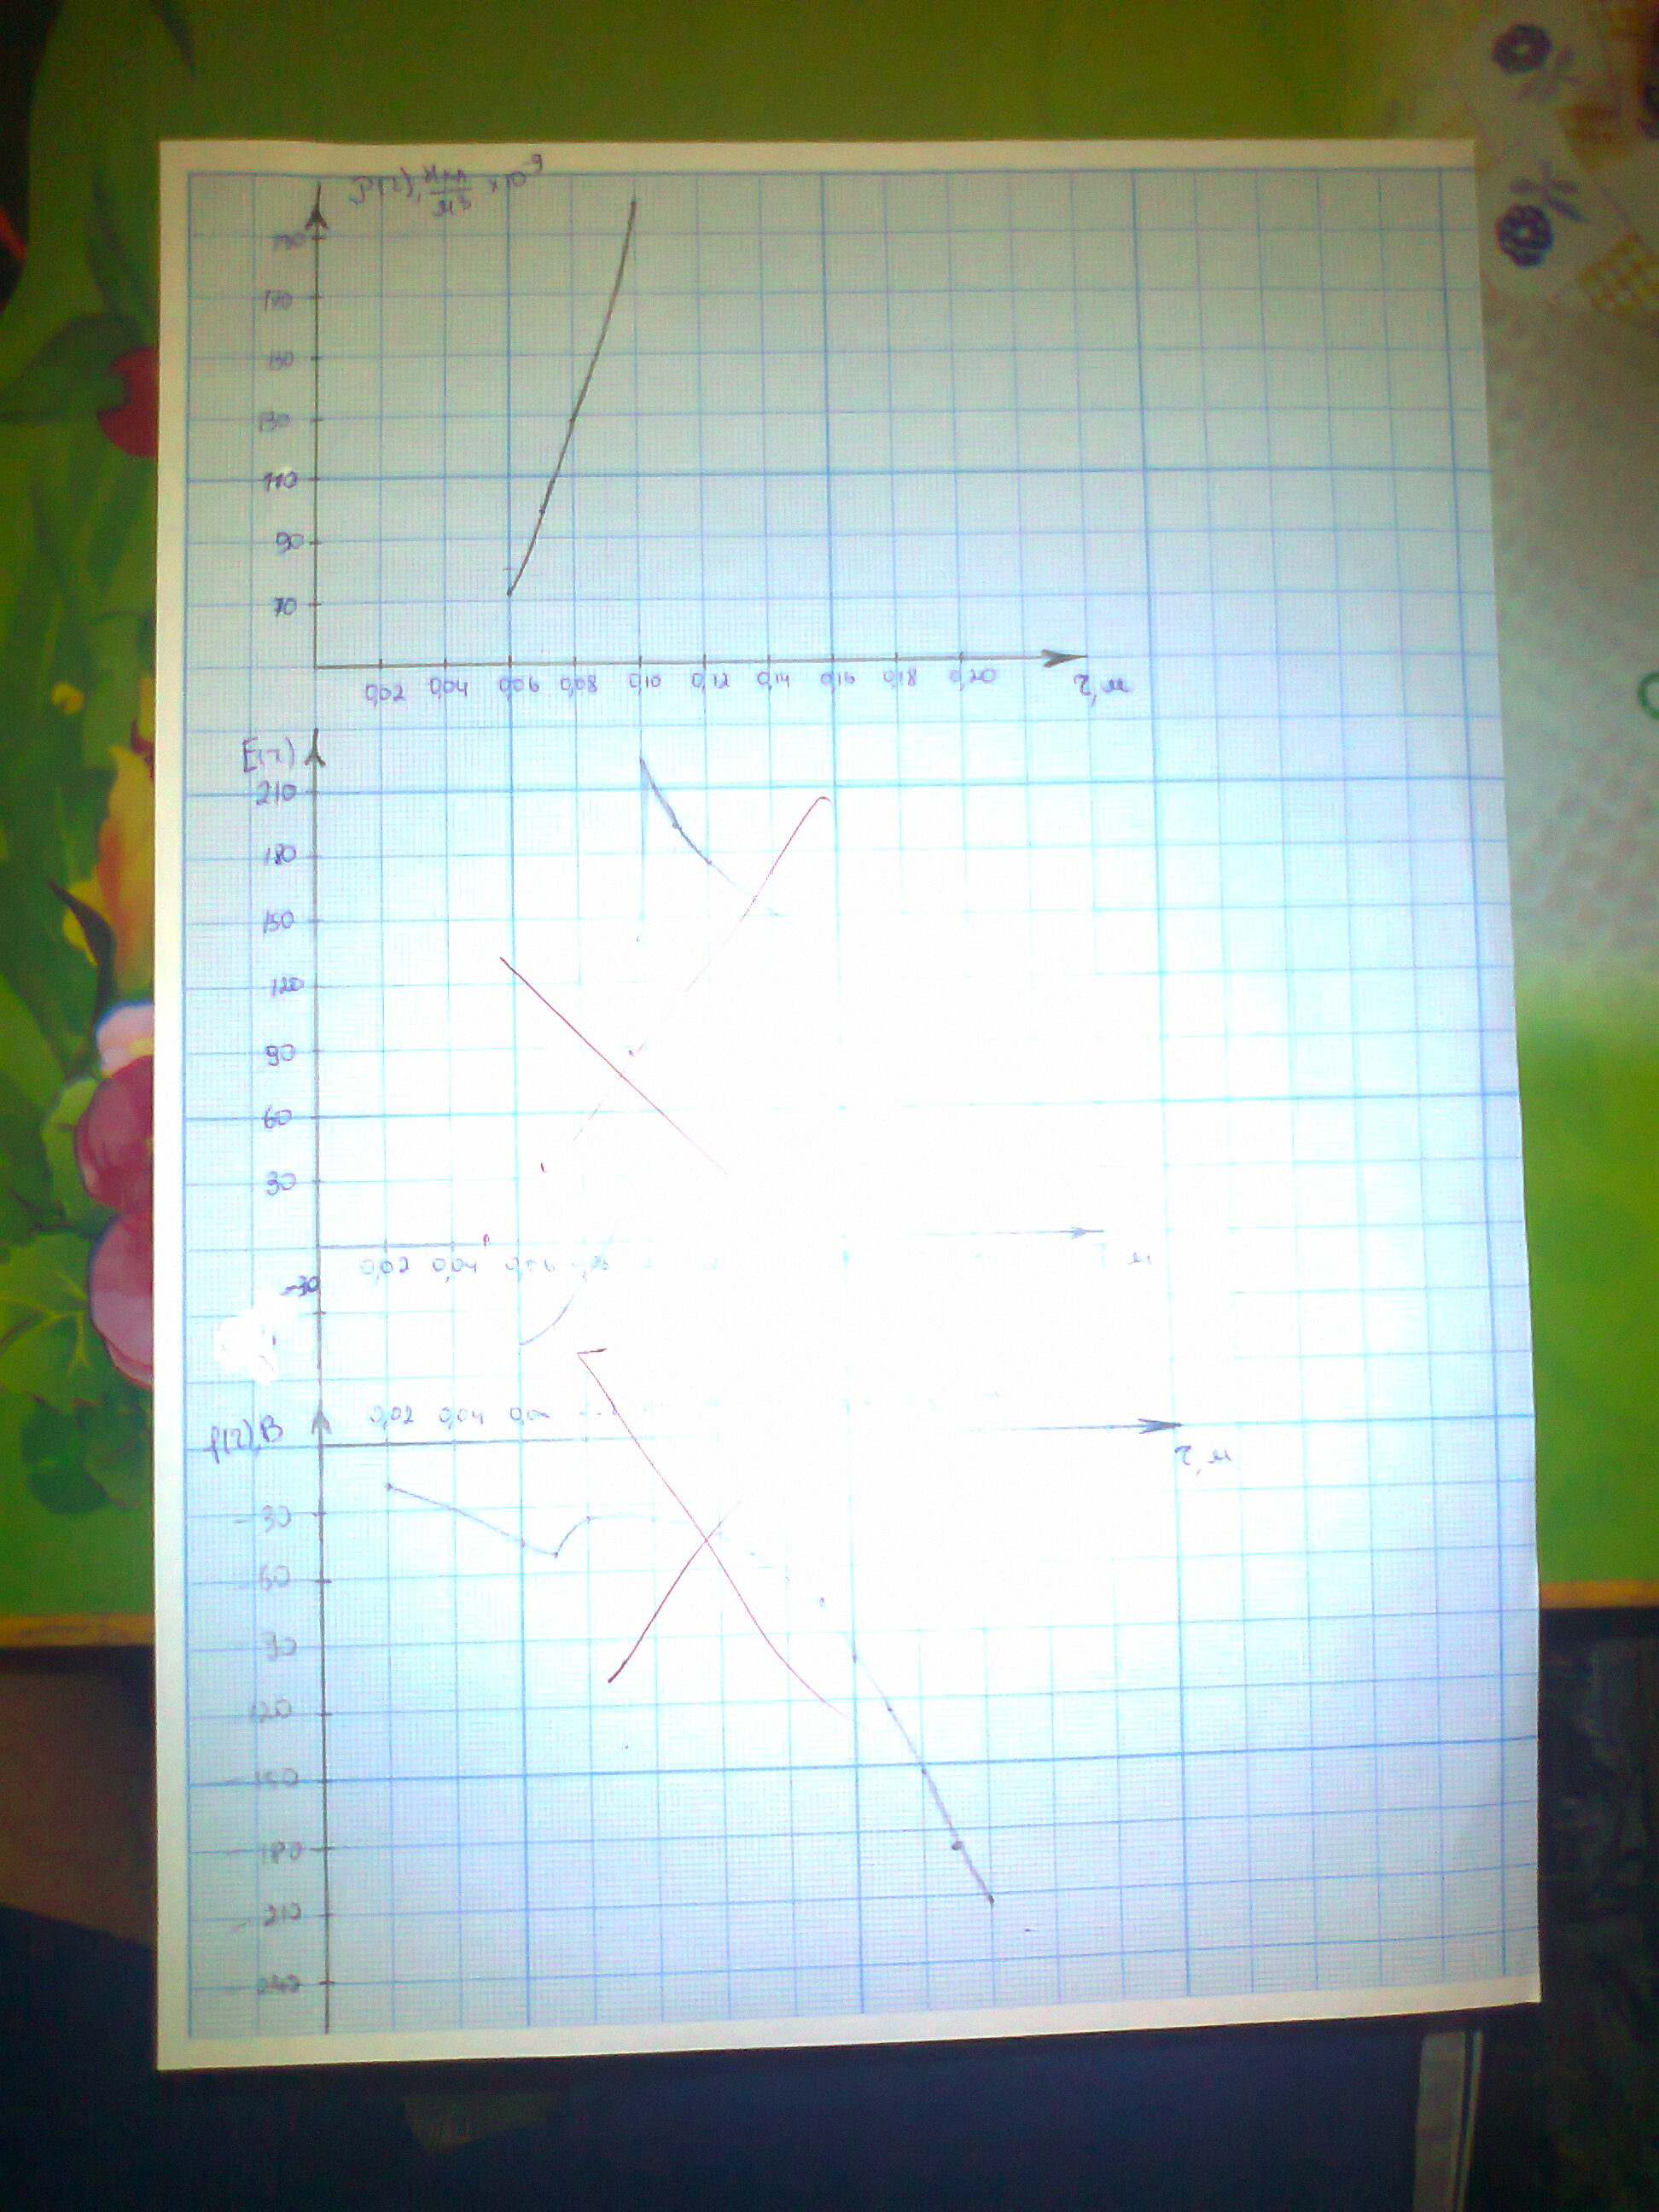 ρ(r), Кл/м³ ×10⁻⁹
190
170
150
130
110
90
70
0,02 0,04 0,06 0,08 0,10 0,12 0,14 0,16 0,18 0,20 r, м
E(r)
210
180
150
120
90
60
30
0,02 0,04 0,06 0,08
-30
φ(r), В
0,02 0,04
r, м
-30
-60
-90
-120
-150
-180
-210
-240